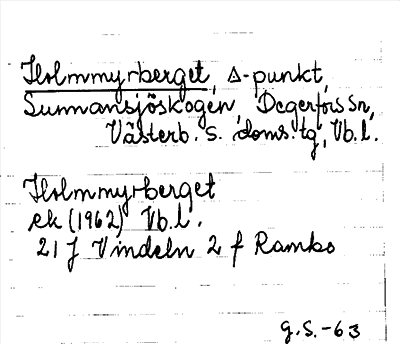 Holmmyrberget, Δ-punkt,
Sunnansjöskogen, Degerfors sn,
Västerb. s. doms. tg, Vb. l.
Holmmyrberget
ek (1962) Vb. l.
21 J Vindeln 2 f Rambo
G. S. -63